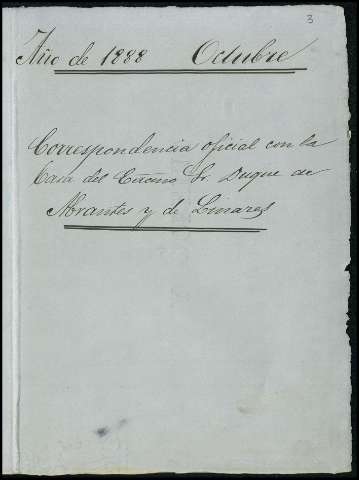 3
Año de 1888 Octubre
Correspondencia oficial con la
Casa del Excmo Sr. Duque de
Abrantes y de Linares